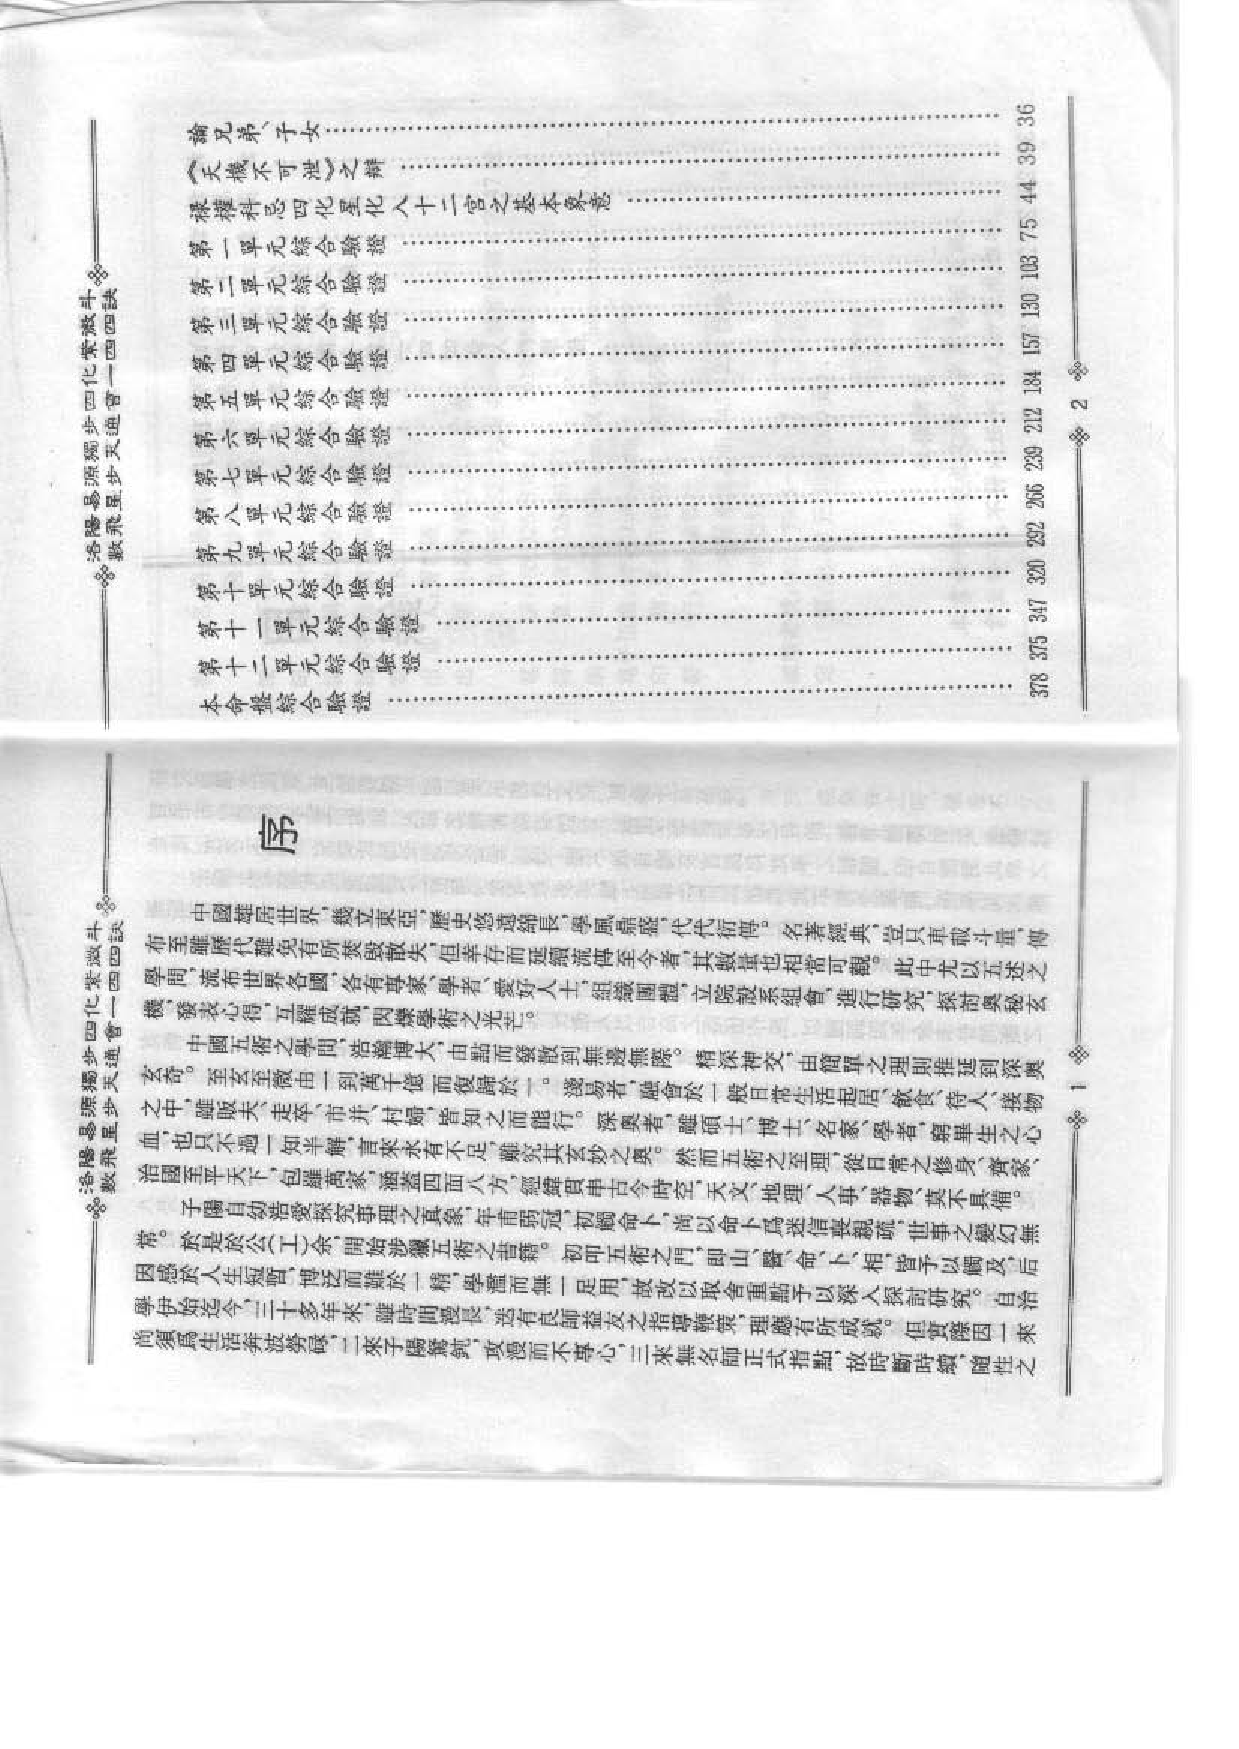 洛陽易源獨步四化紫微斗
數飛星步天通會一四四訣
論兄弟、子女 36
《天機不可泄》之辯 39
祿權科忌四化星化入十二宮之基本象意 44
第一單元綜合驗證 75
第二單元綜合驗證 103
第三單元綜合驗證 130
第四單元綜合驗證 157
第五單元綜合驗證 184
第六單元綜合驗證 212
第七單元綜合驗證 239
第八單元綜合驗證 266
第九單元綜合驗證 292
第十單元綜合驗證 320
第十一單元綜合驗證 347
第十二單元綜合驗證 375
本命盤綜合驗證 378
2
洛陽易源獨步四化紫微斗
數飛星步天通會一四四訣
序
中國雄居世界,巍立東亞,歷史悠遠綿長,學風鼎盛,代代衍傳。名著經典,豈只車載斗量,傳
布至雖歷代難免有所焚毀散失,但幸存而延續流傳至今者,其數量也相當可觀。此中尤以五述之
學問,流布世界各國,各有專家、學者、愛好人士,組織團體,立院設系組會,進行研究,探討奧秘玄
機,發表心得,互耀成就,閃爍學術之光芒。
中國五術之學問,浩瀚博大,由點而發散到無邊無際。精深神交,由簡單之理則推延到深奧
玄奇。至玄至微由一到萬千億而復歸於一。淺易者,融會於一般日常生活起居、飲食、待人、接物
之中,雖販夫、走卒、市井、村婦,皆知之而能行。深奧者,雖碩士、博士、名家、學者,窮畢生之心
血,也只不過一知半解,言來永有不足,難究其玄妙之奧。然而五術之至理,從日常之修身、齊家、
治國至平天下,包羅萬象,涵蓋四面八方,經緯貫串古今時空,天文、地理、人事、器物,莫不具備。
子陽自幼浩愛探究事理之真象,年甫弱冠,初觸命卜,尚以命卜爲迷信 世事之變幻無
常。於是於公(工)余,開始涉獵五術之書籍。初叩五術之門,即山、醫、命、卜、相,皆予以觸及,后
因感於人生短暫,博泛而難於一精,學醫而無一足用,故改以取舍重點予以深入探討研究。自治
學伊始迄今,三十多年來,雖時間漫長,迭有良師益友之指導鞭策,理應有所成就。但實際因一來
尚須爲生活奔波勞碌,二來子陽駑鈍,攻漫而不專心,三來無名師正式指點,故時斷時續,隨性之
1